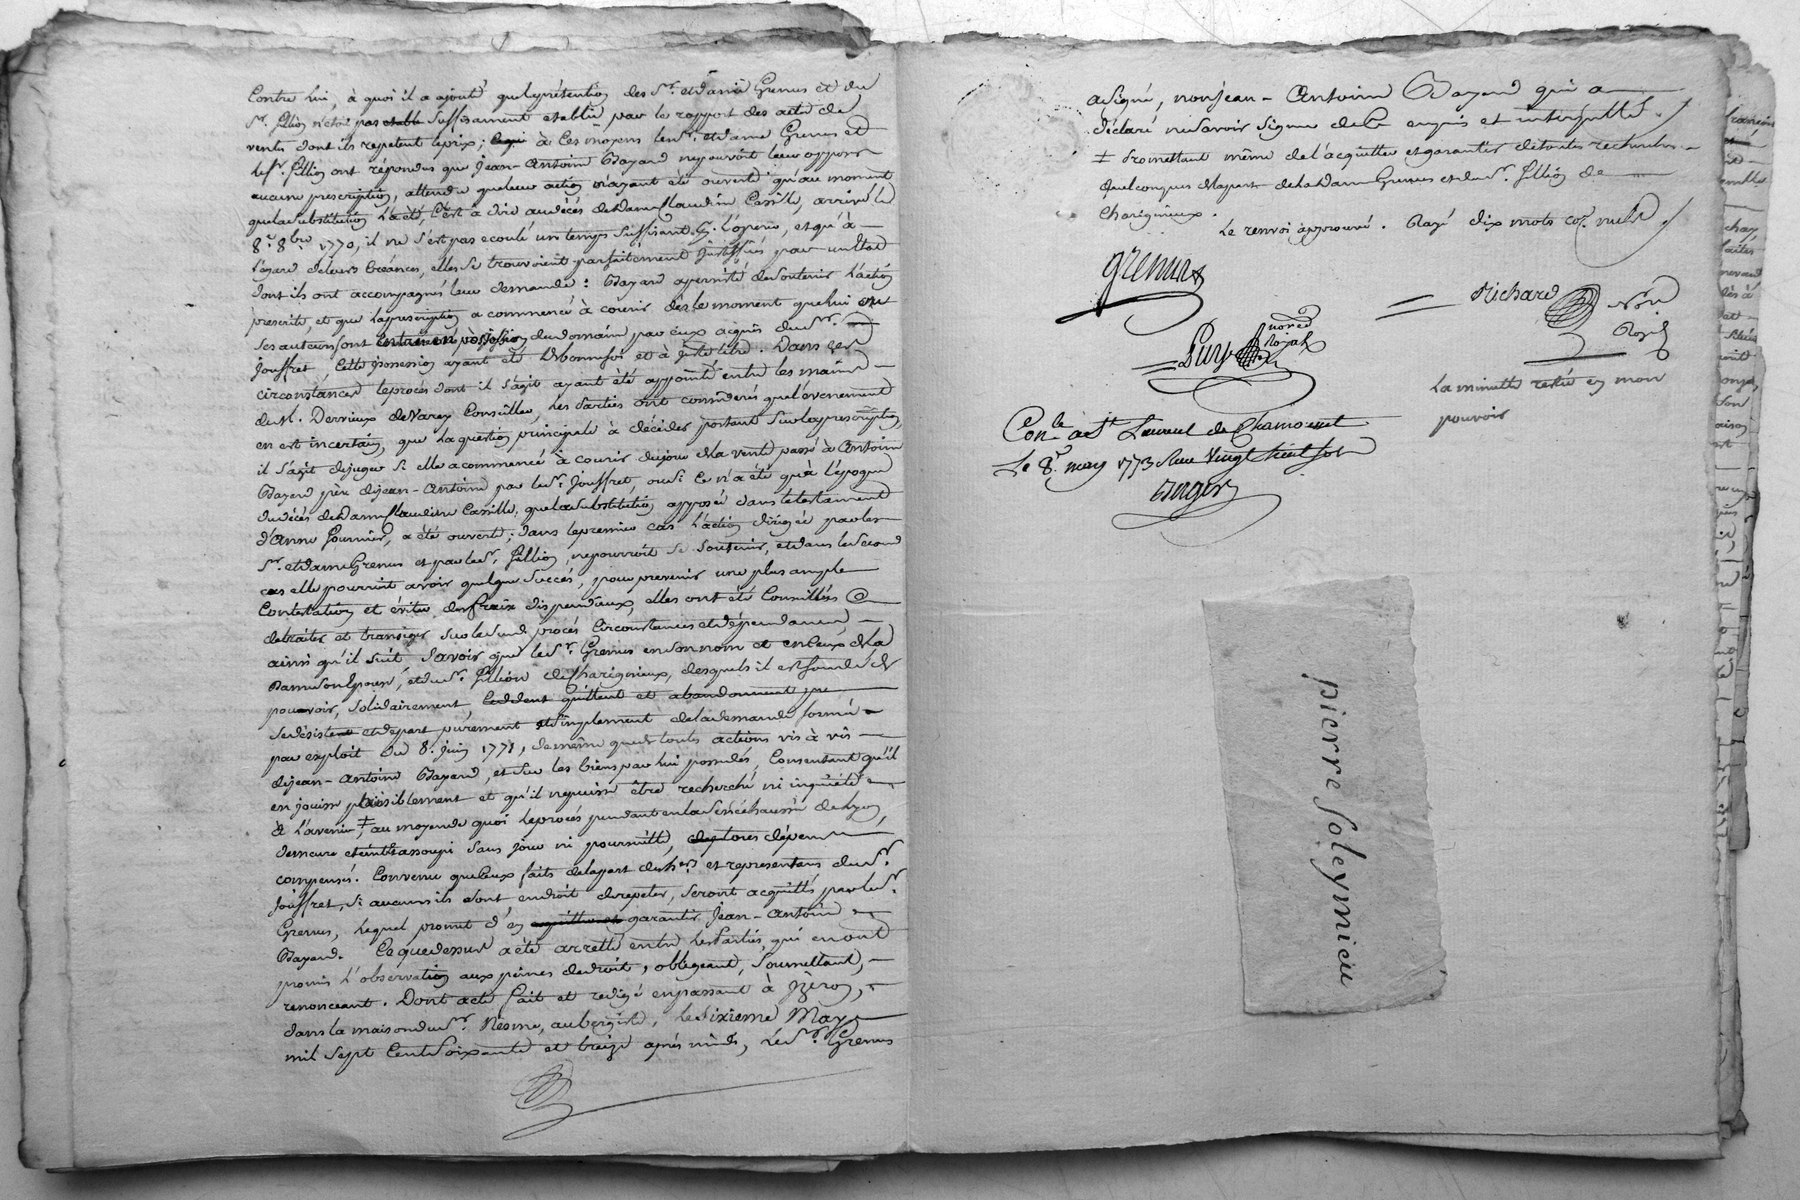 Contre lui, à quoi il a ajouté que la prétention des Sr. et dame Grenus et du
Sr. fillion n'etoit pas suffisament etablie par le rapport des actes de
vente dont ils repetent le prix; à ces moyens le Sr. et dame Grenus et
le Sr. fillion ont répondu que Jean-Antoine Bayard ne pouvoit leur opposer
aucune prescription, attendu que leur action n'ayant été ouverte qu'au moment
que la substitution l'a été, c'est à dire au décès de dame Claudine Caville, arrivé le
8e. 8bre 1770, il ne s'est pas ecoulé un temps suffisant
l'egard de leurs créances, elles se trouvoient parfaitement justifiées par un Etat
dont ils ont accompagné leur demande: Bayard a persisté de soutenir l'action
prescrite et que la prescription a commencé à courir dès le moment que lui ou
ses auteurs sont en possession du domaine par eux acquis du Sr.
Jouffret, cette possession ayant été de bonne foi et à juste titre. Dans ces
circonstances le procès dont il s'agit ayant été appointé entre les mains
de M. Dervieux de Varey Conseiller, les Parties ont considéré que l'évenement
en est incertain, que la question principale à décider portant sur la prescription,
il s'agit de juger si elle a commencé à courir du jour de la vente passé à Antoine
Bayard père de Jean-Antoine par le Sr. Jouffret, ou si ce n'a été qu'à l'époque
du décès de dame Claudine Caville, que la substitution apposée dans le testament
d'Anne Fournier, a été ouverte; dans le premier cas l'action dirigée par les
Sr. et dame Grenus et par le Sr. fillion, ne pourroit se soutenir, et dans le second
cas elle pourroit avoir quelque succès, pour prevenir une plus ample
Contestation et éviter des fraix dispendieux, elles ont été Conseillées
de traiter et transiger sur le susd. procès circonstances et dépendances
ainsi qu'il suit. Savoir que le Sr. Grenus en son nom et en ceux de la
Dame son Epouse, et du Sr. fillion de Charigneux, desquels il est fondé de
pouvoir, solidairement, cedent quittent et abandonnent
se désiste et depart purement et simplement de la demande formée
par exploit du 8. Juin 1771, de même que de toutes actions vis à vis
de Jean-Antoine Bayard, et sur les biens par lui possedés, Consentant qu'il
en jouisse paisiblement et qu'il ne puisse être recherché ni inquiété
à l'avenir, ‡ au moyen de quoi le procès pendant en la Sénéchaussée de Lyon,
demeure éteint et assoupi sans jour ni poursuitte, dépens
compensés. Convenu que ceux faits de la part des hers. et representans du Sr.
Jouffret, si aucuns ils sont en droit de repeter, seront acquittés par le Sr.
Grenus, lequel promet d'en garantir Jean-Antoine
Bayard. Ce que dessus a été arretté entre les Parties, qui en ont
promis l'observation aux peines de droit, obligeant, soumettant,
renonceant. Dont acte fait et redigé en passant à Izeron,
dans la maison du Sr. Nesme, aubergiste, le sixieme May
mil sept cent soixante et treize après midi, le Sr. Grenus
a signé, non Jean-Antoine Bayard qui a
déclaré ne savoir signer de ce enquis et interpellé.
‡ Promettant même de l'acquitter et garantir de toutes recherches
quelconques de la part de la dame Grenus et du Sr. fillion de
Charigneux.
Le renvoi approuvé. Rayé dix mots comme nuls.
Grenus
Richard Nore
Royal
nored
Royal
La minutte restée en mon
pouvoir
Conlé à St Laurent de Chamousset
Le 8e. may 1773 Reçu Vingt huit sols
pierre Soleymieu